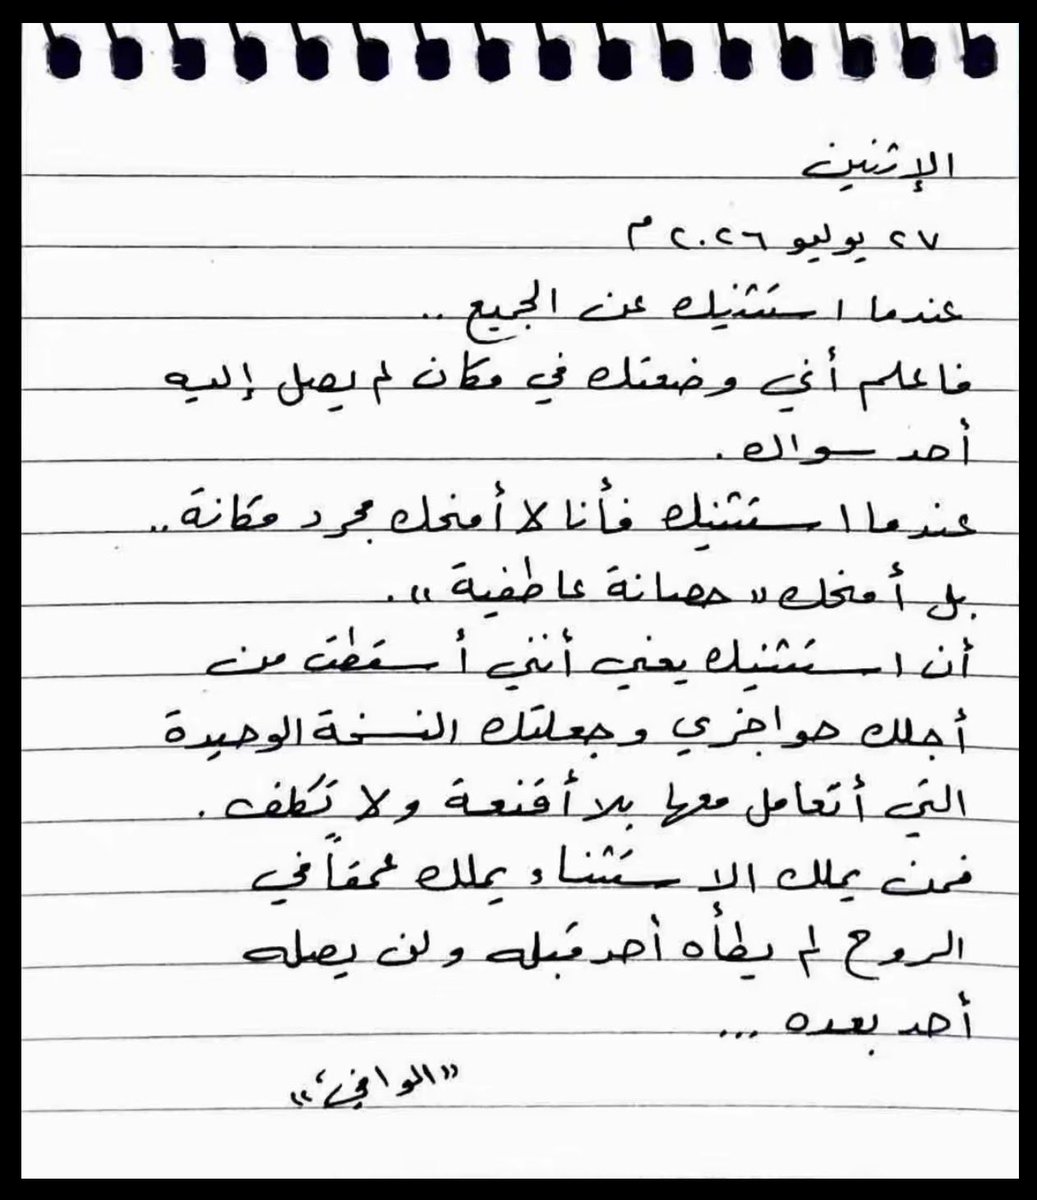 الإثنين
٢٧ يوليو ٢٠٢٦ م
عندما استثنيك عن الجميع ..
فاعلم أني وضعتك في مكان لم يصل إليه
أحد سواك .
عندما استثنيك فأنا لا أمنحك مجرد مكانة ..
بل أمنحك « حصانة عاطفية » .
أن استثنيك يعني أنني أسقطت من
أجلك حواجزي وجعلتك النسخة الوحيدة
التي أتعامل معها بلا أقنعة ولا تكلف .
فمن يملك الاستثناء يملك عمقاً في
الروح لم يطأه أحد قبله ولن يصله
أحد بعده ...
« الوافي »